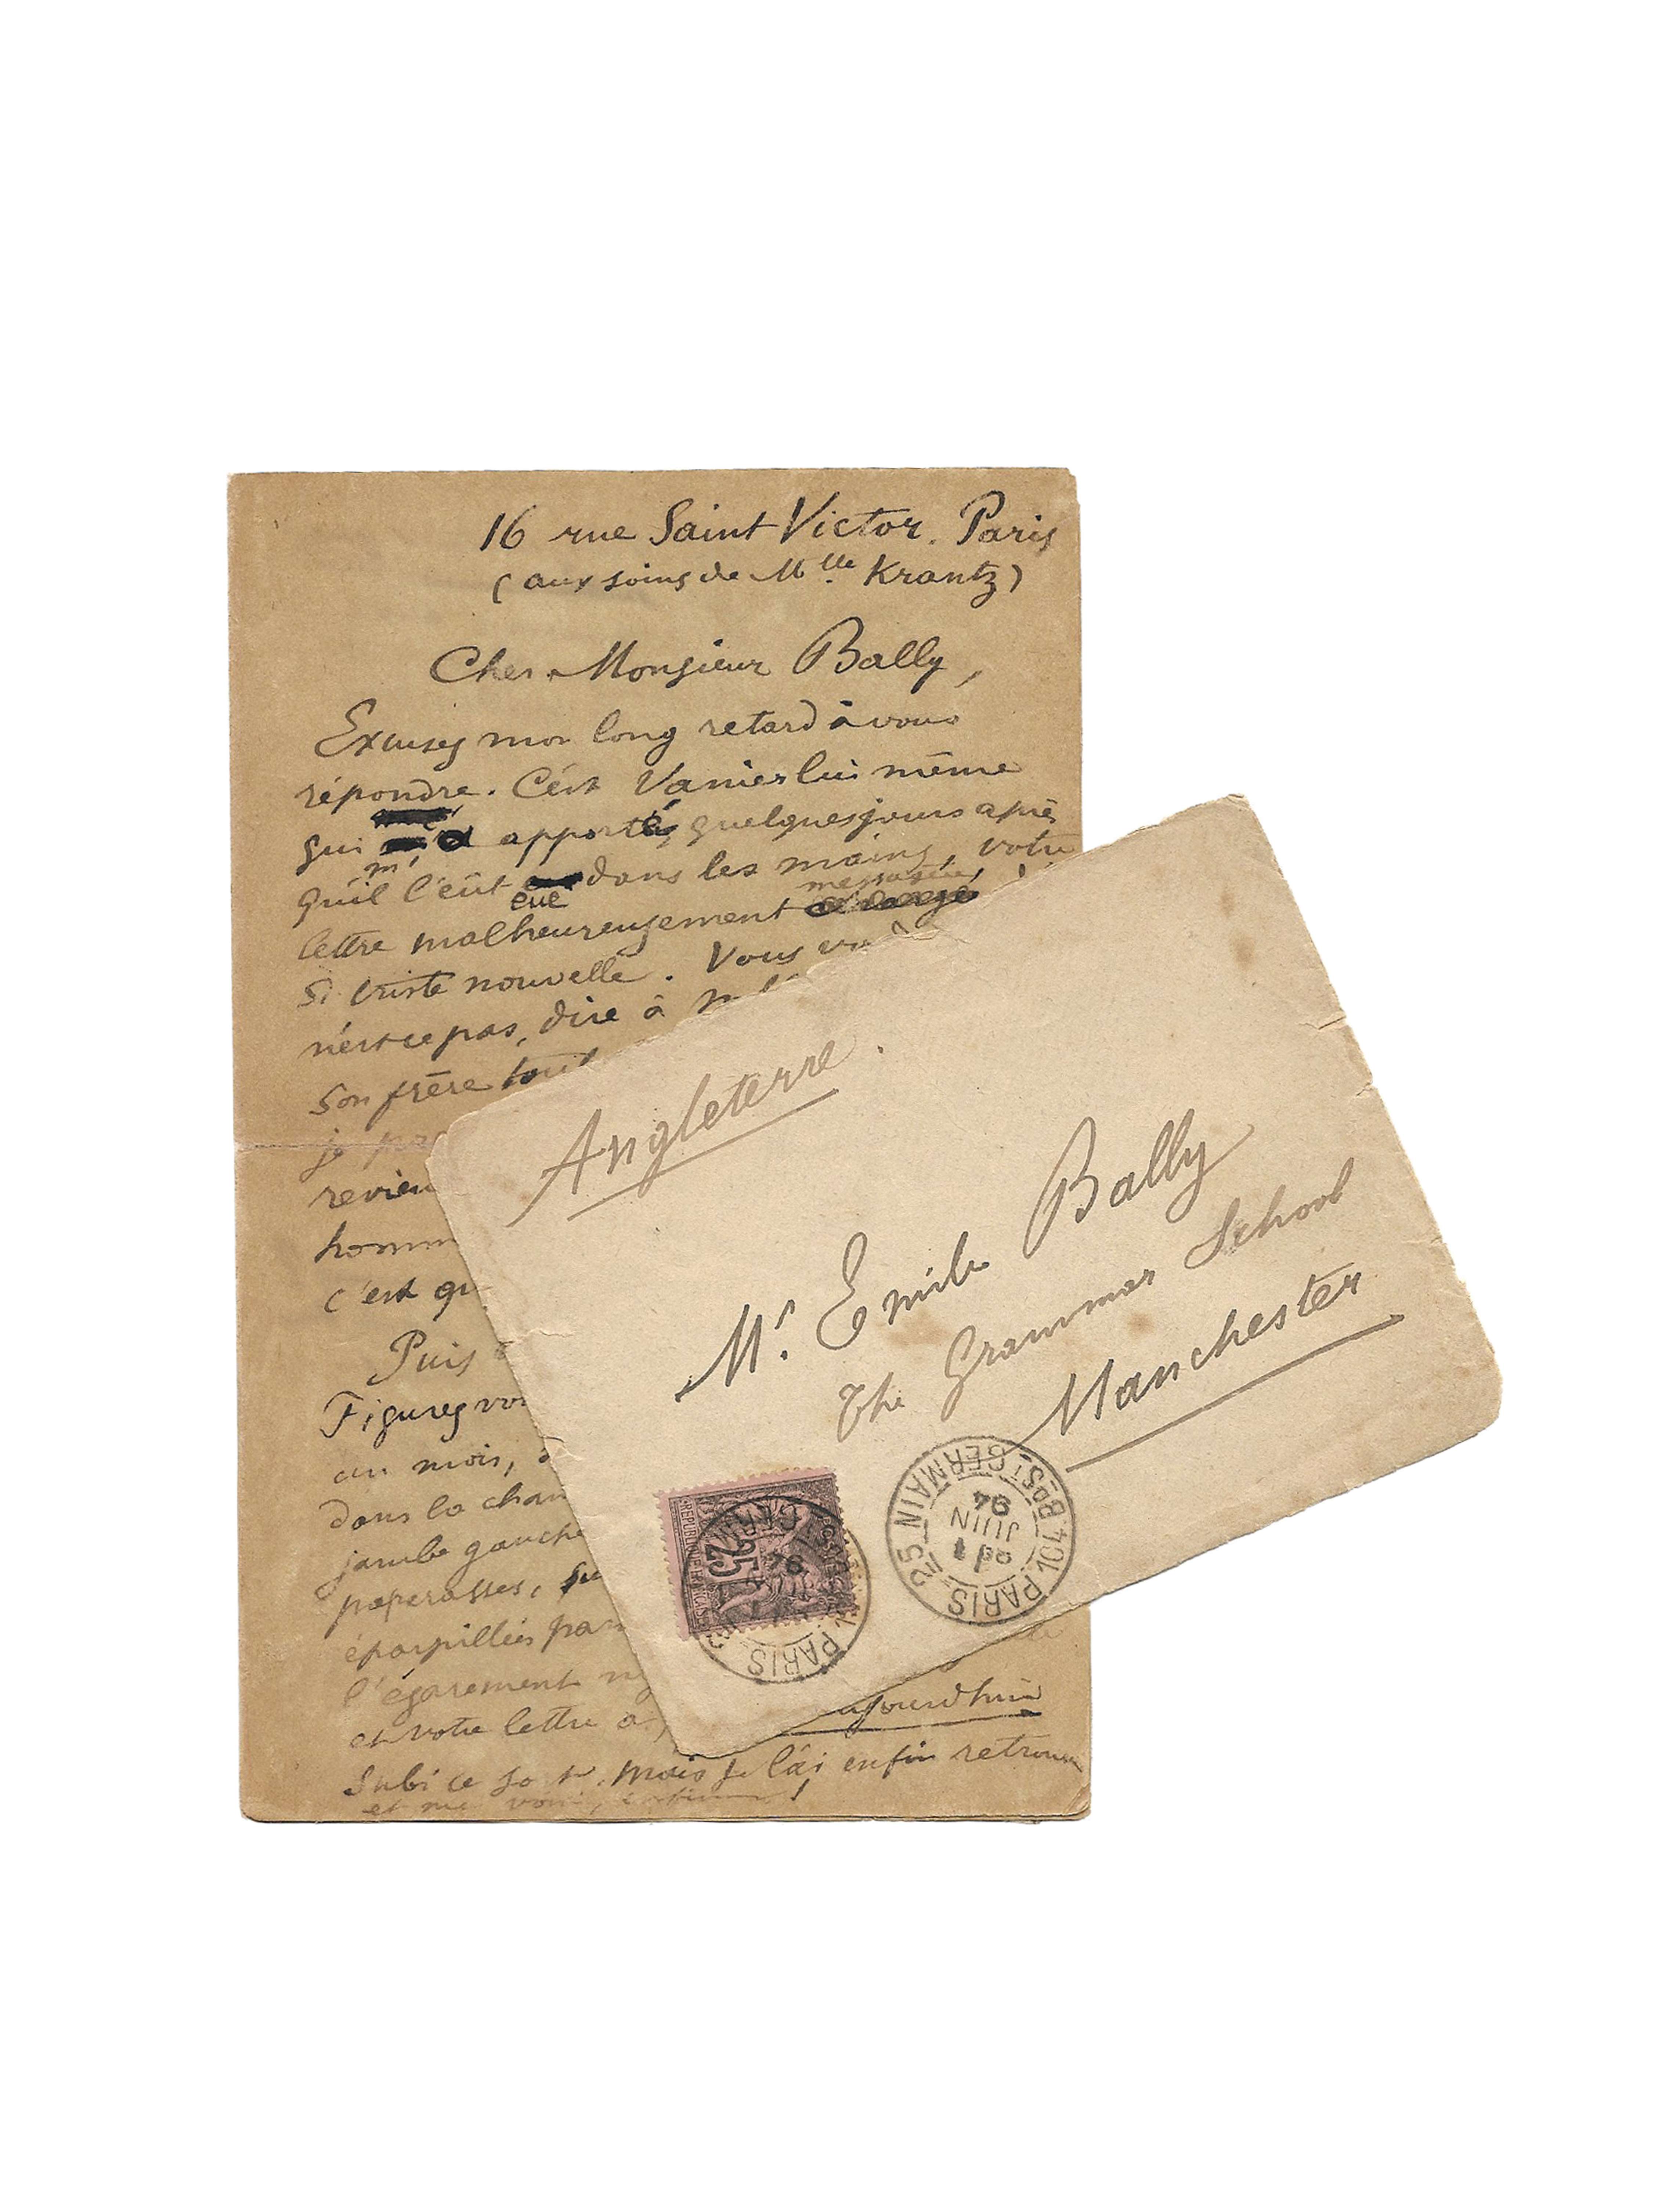 16 rue Saint Victor. Paris
(aux soins de Mlle Krantz)
Cher Monsieur Bally,
Excusez mon long retard à vous
répondre. C'est Vanier lui même
qui m'a apporté, quelques jours après
qu'il l'eût eue dans les mains, votre
lettre malheureusement messagère
si triste nouvelle. Vous
n'est ce pas, dire à
son frère tout
je
revien
homm
c'est qu
Puis
Figurez vou
au mois,
dans la cham
jambe gauche
paperasses, su
éparpillées par
l'égarement
et votre lettre a
aujourd'hui
subi ce sort. mais je l'ai enfin retrouvée
et me voici, enfin!
Angleterre.
Mr. Emile Bally
The Grammar School
Manchester
REPUBLIQUE FRANÇAISE
25
PARIS
94
PARIS 104
Bd St GERMAIN 25
JUIN
94